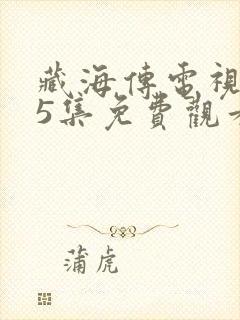 藏海傳電視
5集免費觀看
蒲虎